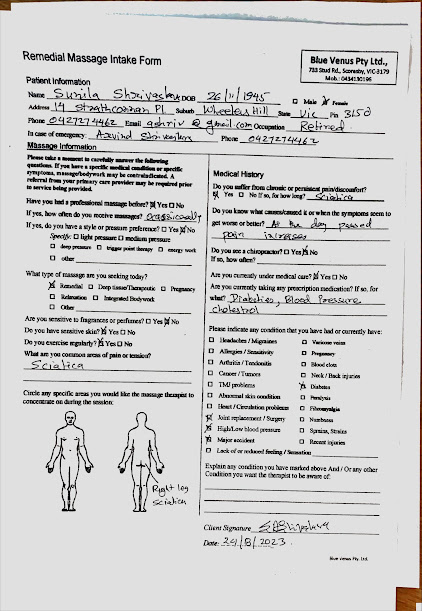 Remedial Massage Intake Form
Blue Venus Pty Ltd.,
Stud Rd., Scoresby, VIC-3179
Mob.: 0434130195
Patient Information
Name Sunila Shrivastava DOB 26/11/1945 Male Female
Address 14 Strathconnan Pl Suburb Wheelers Hill State Vic Pin 3150
Phone 0427274462 Email @gmail.com Occupation Retired
In case of emergency: Arvind Phone 0427274462
Massage Information
Please take a moment to carefully answer the following
questions. If you have a specific medical condition or specific
symptoms, massage/bodywork may be contraindicated. A
referral from your primary care provider may be required prior
to service being provided.
Have you had a professional massage before? Yes No
If yes, how often do you receive massages? Occasionally
If yes, do you have a style or pressure preference? Yes No
Specify: light pressure medium pressure
deep pressure trigger point therapy energy work
other
What type of massage are you seeking today?
Remedial Deep tissue/Therapeutic Pregnancy
Relaxation Integrated Bodywork
Other
Are you sensitive to fragrances or perfumes? Yes No
Do you have sensitive skin? Yes No
Do you exercise regularly? Yes No
What are you common areas of pain or tension?
Sciatica
Circle any specific areas you would like the massage therapist to
concentrate on during the session:
Right leg
Sciatica
Medical History
Do you suffer from chronic or persistent pain/discomfort?
Yes No If so, for how long? Sciatica
Do you know what causes/caused it or when the symptoms seem to
get worse or better? At the day passed
pain increases
Do you see a chiropractor? Yes No
If so, how often?
Are you currently under medical care? Yes No
Are you currently taking any prescription medication? If so, for
what? Diabeties, Blood Pressure
Cholestrol
Please indicate any condition that you have had or currently have:
Headaches / Migraines Varicose veins
Allergies / Sensitivity Pregnancy
Arthritis / Tendonitis Blood clots
Cancer / Tumors Neck / Back injuries
TMJ problems Diabetes
Abnormal skin condition Paralysis
Heart / Circulation problems Fibromyalgia
Joint replacement / Surgery Numbness
High/Low blood pressure Sprains, Strains
Major accident Recent injuries
Lack of or reduced feeling / Sensation
Explain any condition you have marked above And / Or any other
Condition you want the therapist to be aware of:
Client Signature
Date: 24/8/2023
Blue Venus Pty. Ltd.